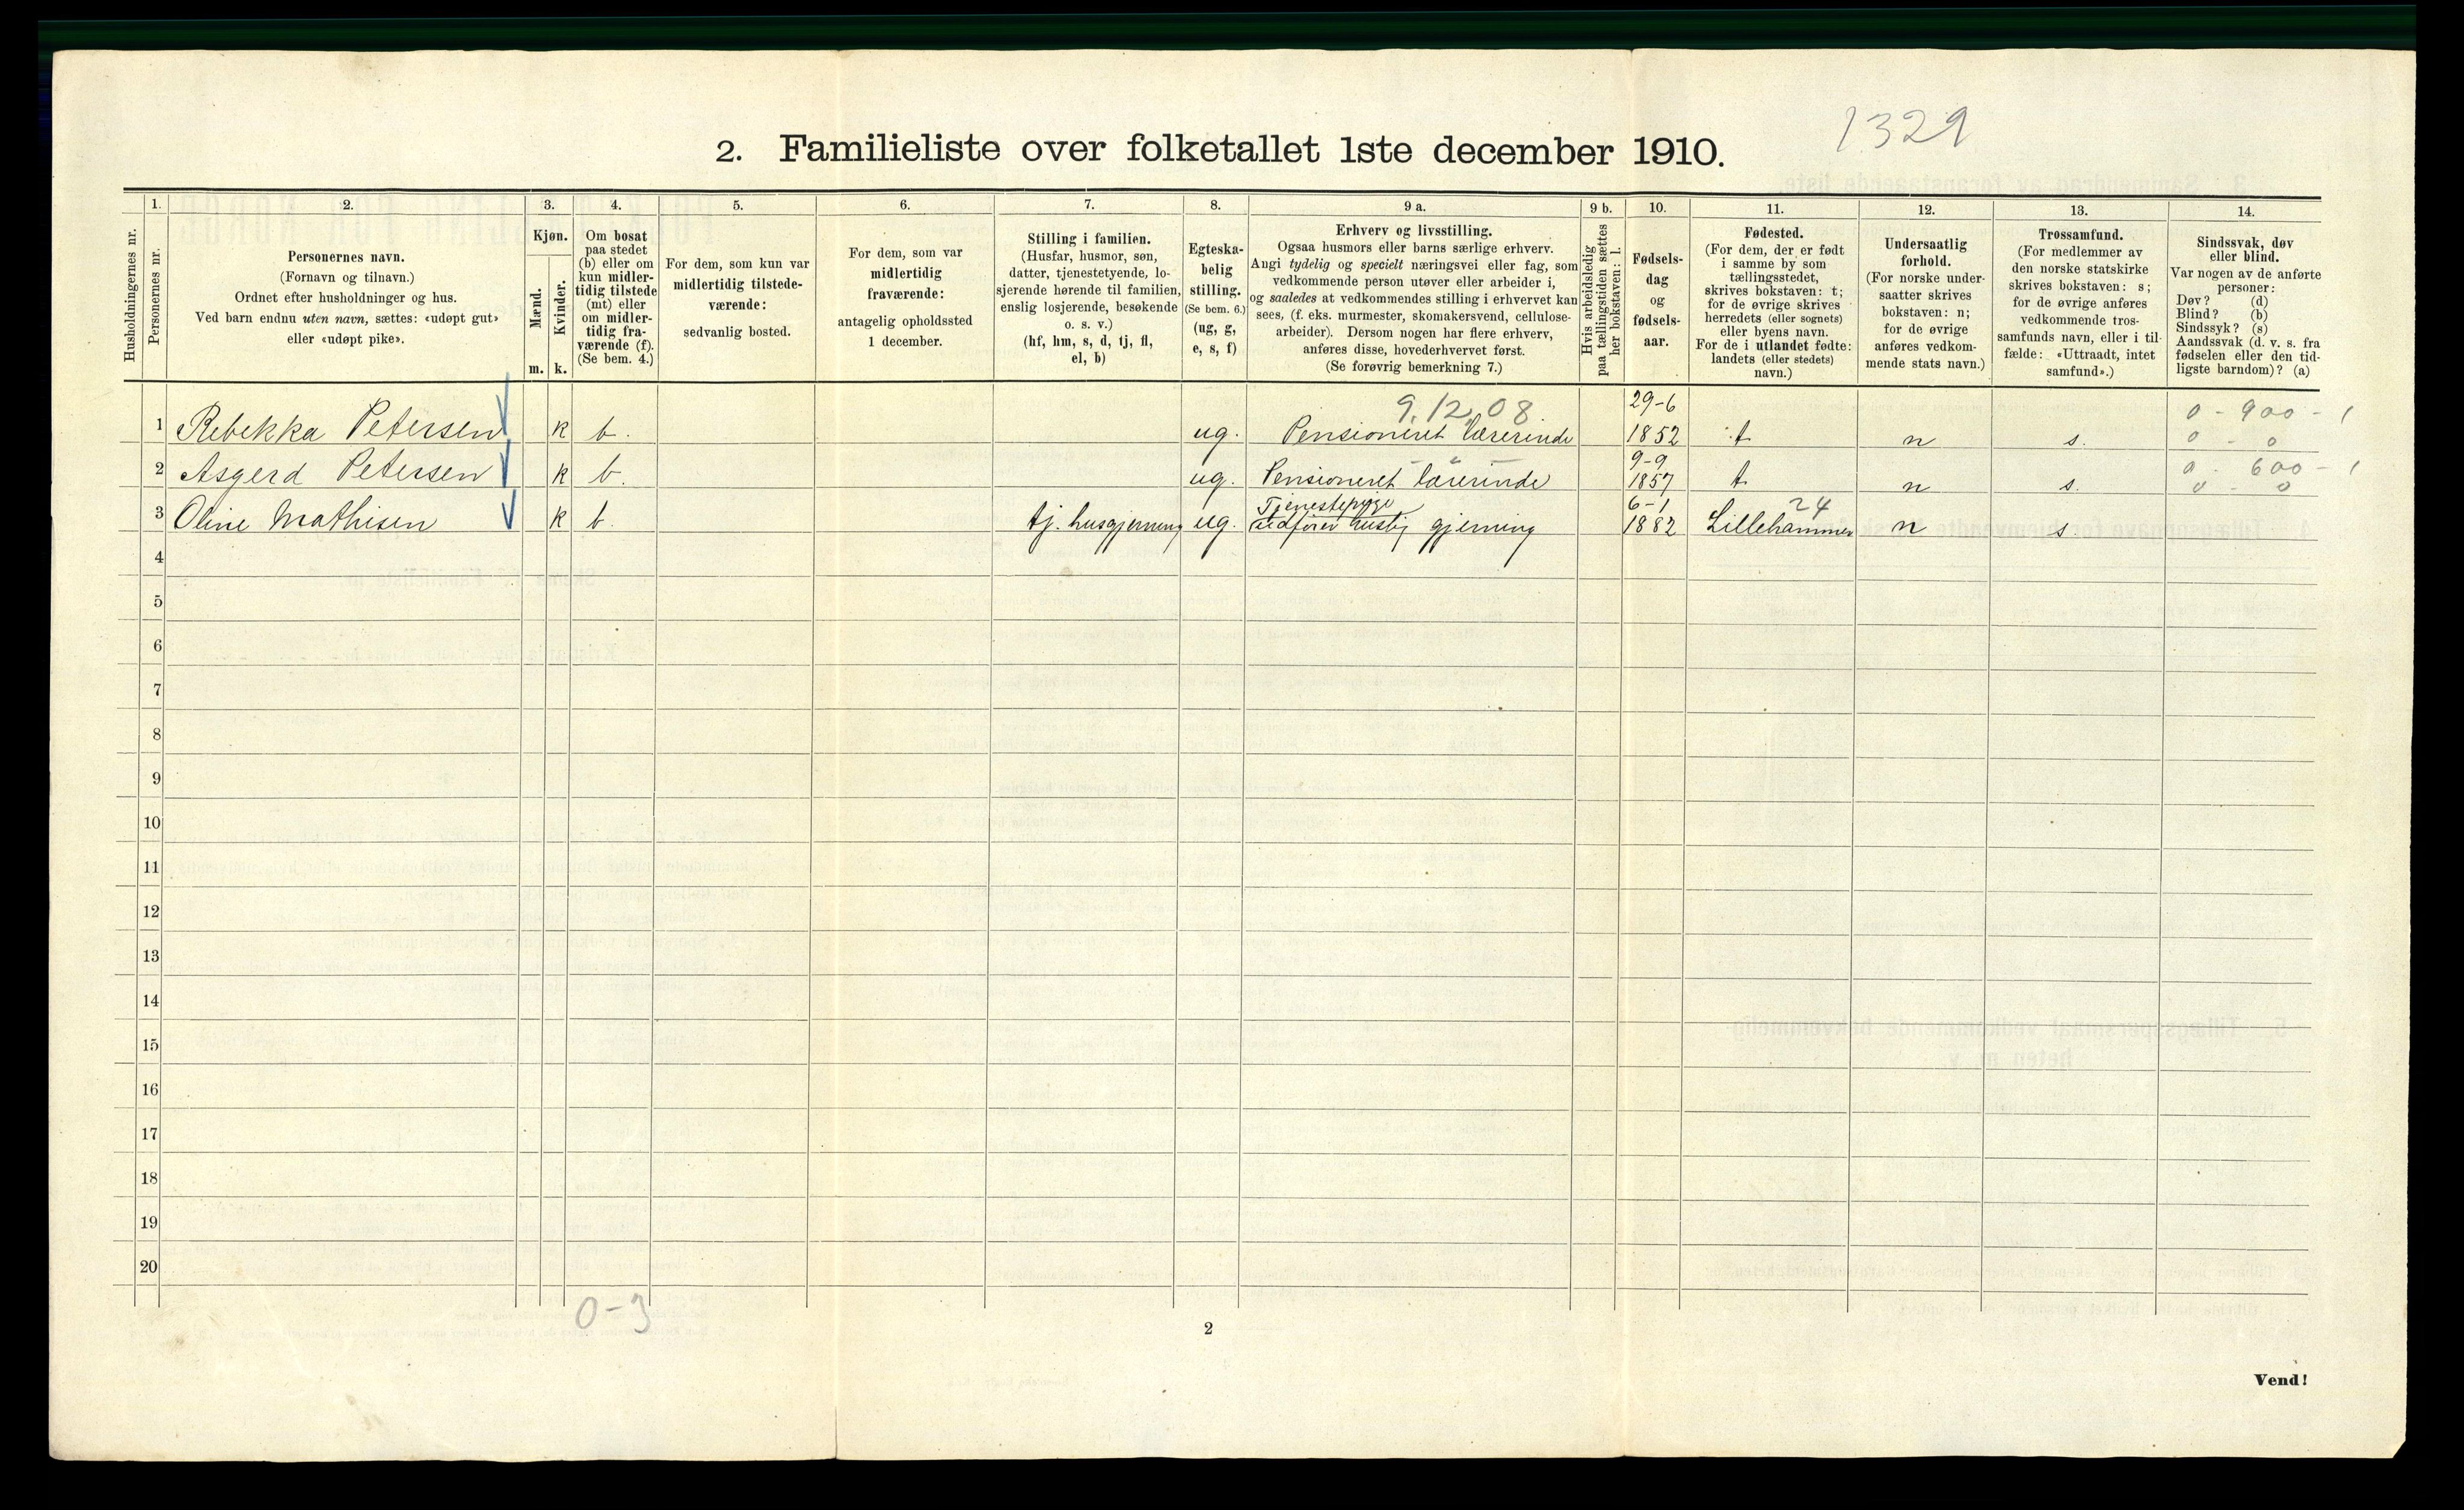 1329
2. Familieliste over folketallet 1ste december 1910.
Husholdningernes nr.
1.
Personernes nr.
2.
Personernes navn.
(Fornavn og tilnavn.)
Ordnet efter husholdninger og hus.
Ved barn endnu uten navn, sættes: «udøpt gut»
eller «udøpt pike».
3.
Kjøn.
Mænd.
Kvinder.
m. k.
4.
Om bosat
paa stedet
(b) eller om
kun midler-
tidig tilstede
(mt) eller
om midler-
tidig fra-
værende (f).
(Se bem. 4.)
5.
For dem, som kun var
midlertidig tilstede-
værende:
sedvanlig bosted.
6.
For dem, som var
midlertidig
fraværende:
antagelig opholdssted
1 december.
7.
Stilling i familien.
(Husfar, husmor, søn,
datter, tjenestetyende, lo-
sjerende hørende til familien,
enslig losjerende, besøkende
o. s. v.)
(hf, hm, s, d, tj, fl,
el, b)
8.
Egteska-
belig
stilling.
(Se bem. 6.)
(ug, g,
e, s, f)
9 a.
Erhverv og livsstilling.
Ogsaa husmors eller barns særlige erhverv.
Angi tydelig og specielt næringsvei eller fag, som
vedkommende person utøver eller arbeider i,
og saaledes at vedkommendes stilling i erhvervet kan
sees, (f. eks. murmester, skomakersvend, cellulose-
arbeider). Dersom nogen har flere erhverv,
anføres disse, hovederhvervet først.
(Se forøvrig bemerkning 7.)
9 b.
Hvis arbeidsledig
paa tællingstiden sættes
her bokstaven: l.
10.
Fødsels-
dag
og
fødsels-
aar.
11.
Fødested.
(For dem, der er født
i samme by som
tællingsstedet,
skrives bokstaven: t;
for de øvrige skrives
herredets (eller sognets)
eller byens navn.
For de i utlandet fødte:
landets (eller stedets)
navn.)
12.
Undersaatlig
forhold.
(For norske under-
saatter skrives
bokstaven: n;
for de øvrige
anføres vedkom-
mende stats navn.)
13.
Trossamfund.
(For medlemmer av
den norske statskirke
skrives bokstaven: s;
for de øvrige anføres
vedkommende tros-
samfunds navn, eller i til-
fælde: «Uttraadt, intet
samfund».)
14.
Sindssvak, døv
eller blind.
Var nogen av de anførte
personer:
Døv? (d)
Blind? (b)
Sindssyk? (s)
Aandssvak (d. v. s. fra
fødselen eller den tid-
ligste barndom)? (a)
9.12.08 29-6 0 - 900 - 1
1 Rebekka Petersen k b. ug. Pensioneret lærerinde 1852 t n s. 0 - 0
9-9 0 - 600 - 1
2 Asgerd Petersen k b. ug. Pensioneret lærerinde 1857 t n s. 0 - 0
Tjenestepige 6-1 24
3 Oline Mathisen k b. tj. husgjerning ug. huslig gjerning 1882 Lillehammer n s.
4
5
6
7
8
9
10
11
12
13
14
15
16
17
18
19
20
0-3
2
Vend!